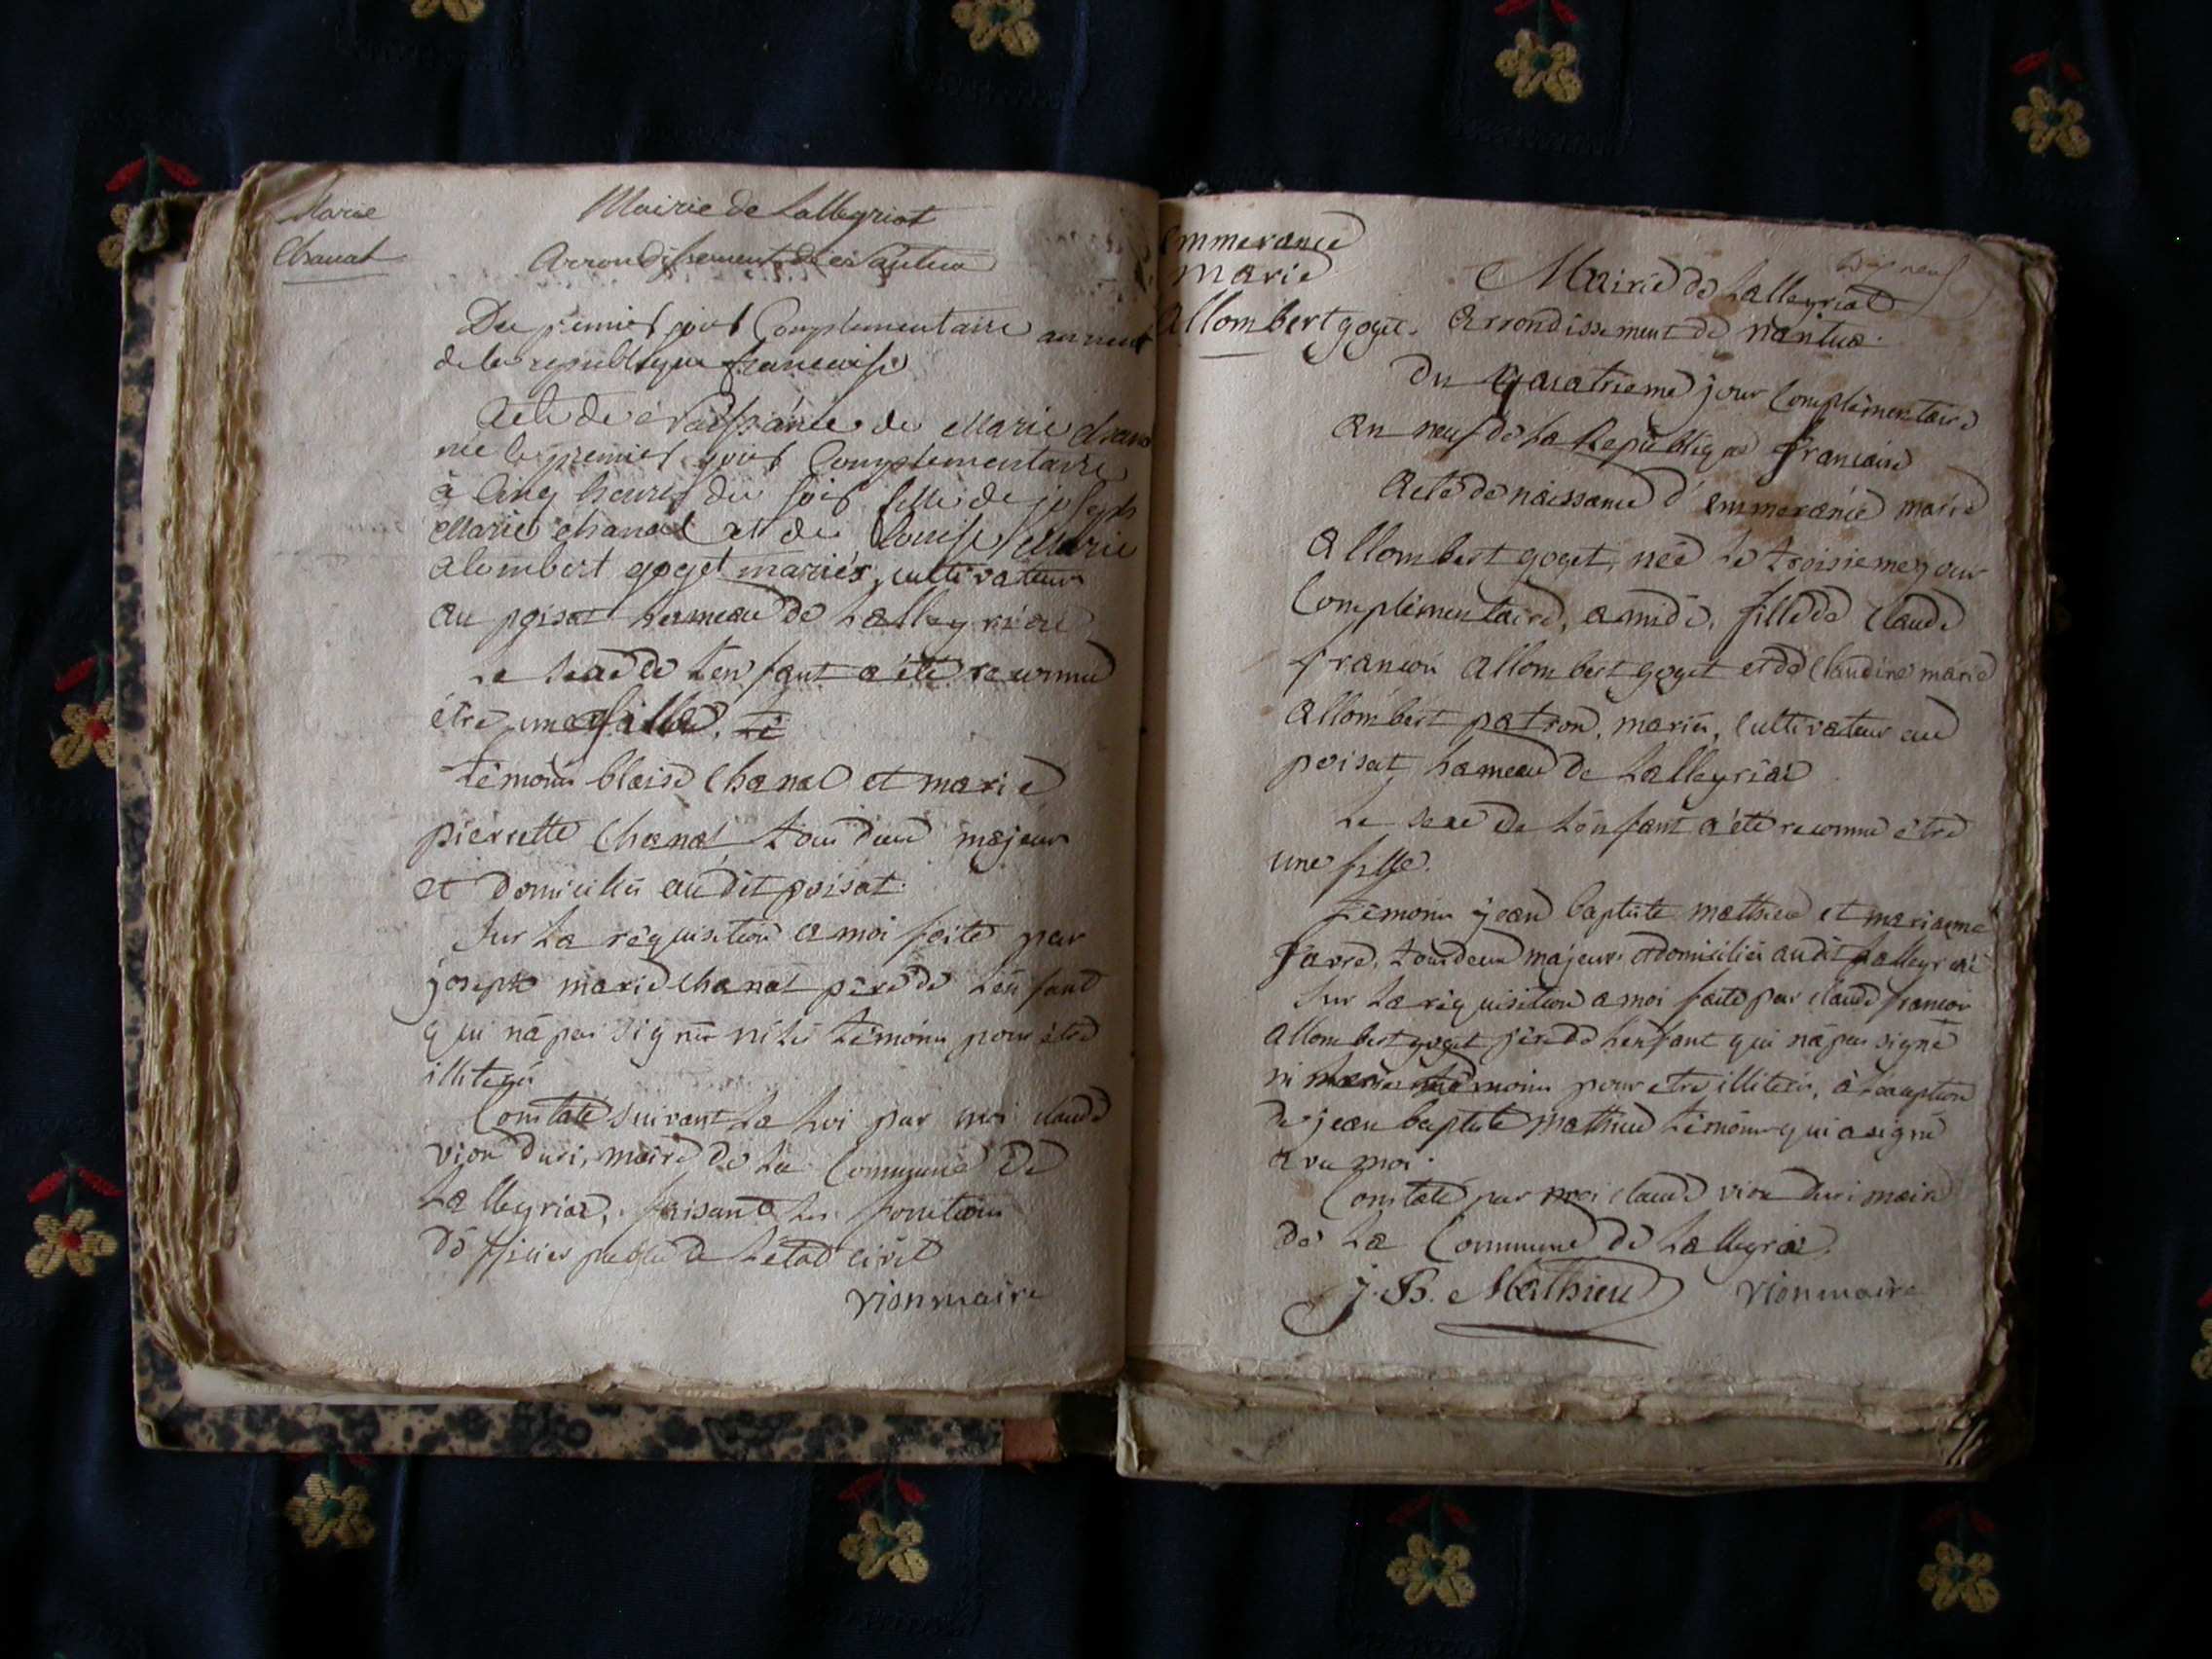 Marie
Chanal
Mairie de Lalleyriat
Arrondissement de Nantua
Du premier jour Complementaire an neuf
de la republique francaise
Acte de Naissance de Marie Chana
née le premier jour Complementaire
à Cinq heures du soir fille de joseph
Marie chanal et de Louise Marie
alombert goget mariés, cultivateurs
au poisat hameau de Lalleyriat
le sexe de Lenfant a été reconnu
être une fille.
témoins blaise Chanal et marie
pierrette Chanal tous deux majeurs
et domiciliés au dit poisat.
Sur La réquisition a moi faite par
joseph marie chanal père de Lenfant
qui n'a pas signé ni les témoins pour être
illiterés
Constaté suivant La Loi par moi claude
vion duri, maire de La Commune de
Lalleyriat, faisant les fonctions
dofficier public de Létat civil
vion maire
emmerance
marie
allombert goget
dix neuf
Mairie de Lalleyriat
arrondissement de nantua.
du quatrieme jour Complémentaire
an neuf de La Republique francaise
acte de naissance d'emmerance marie
allombert goget, née Le troisieme jour
Complémentaire, a midi, fille de Claude
francois allombert goget et de Claudine marie
allombert patron, mariés, Cultivateur au
poisat hameau de Lalleyriat
Le sexe de Lenfant a été reconnu être
une fille.
témoins jean baptiste mathieu et marianne
favre, tous deux majeurs et domiciliés audit Lalleyriat
Sur La réquisition a moi faite par claude francois
allombert goget père de Lenfant qui n'a pas signé
ni témoins pour etre illiterés, à Lexception
de jean baptiste mathieu témoins qui a signé
avec moi.
Constaté par moi claude vion duri maire
de La Commune de Lalleyriat.
j. B. Mathieu vion maire